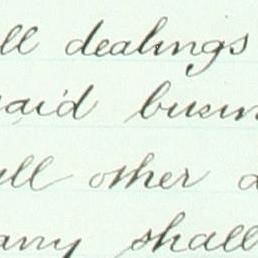 ll dealings
said busin
all other
any shall